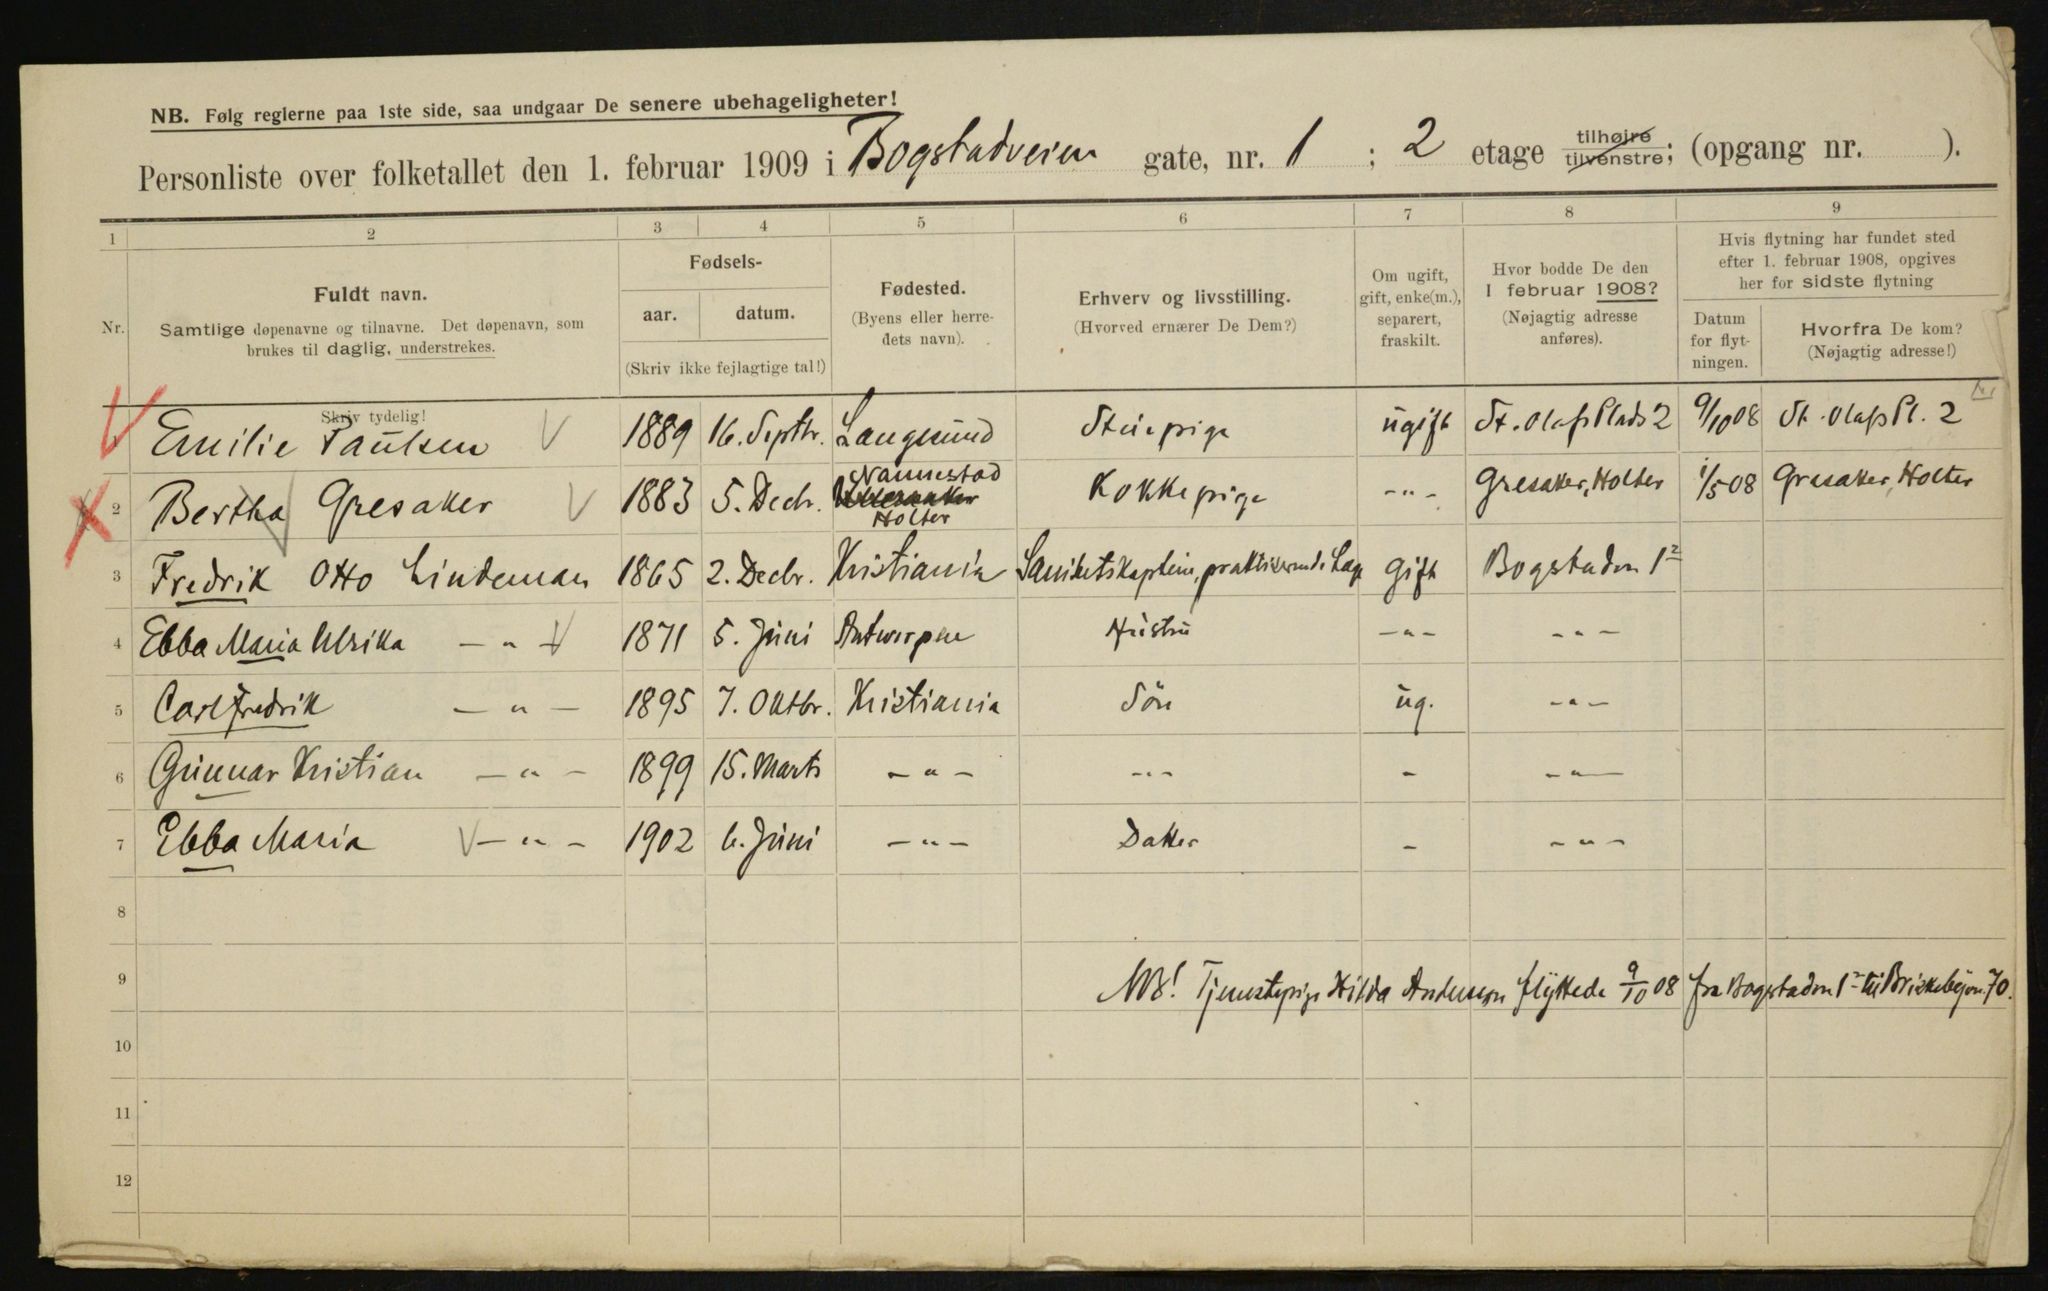 NB. Følg reglerne paa 1ste side, saa undgaar De senere ubehageligheter!
Personliste over folketallet den 1. februar 1909 i Bogstadveien gate, nr. 1 ; 2 etage tilhøire tilvenstre; (opgang nr. ).
1 2 3 4 5 6 7 8 9
Nr.
Fuldt navn.
Samtlige døpenavne og tilnavne. Det døpenavn, som
brukes til daglig, understrekes.
Skriv tydelig!
Fødsels-
aar. datum.
(Skriv ikke fejlagtige tal!)
Fødested.
(Byens eller herre-
dets navn).
Erhverv og livsstilling.
(Hvorved ernærer De Dem?)
Om ugift,
gift, enke(m.),
separert,
fraskilt.
Hvor bodde De den
1 februar 1908?
(Nøjagtig adresse
anføres).
Hvis flytning har fundet sted
efter 1. februar 1908, opgives
her for sidste flytning
Datum
for flyt-
ningen.
Hvorfra De kom?
(Nøjagtig adresse!)
Emilie Paulsen 1889 16. Septbr. Langesund Stuepige ugift St. Olafs Plads 2 9/10 08 St. Olafs Pl. 2
2 Bertha Gresaker 1883 5. Decbr. Nannestad Holter Kokkepige -"- Gresaker, Holter 1/5 08 Gresaker, Holter
3 Fredrik Otto Lindeman 1865 2. Decbr. Kristiania Sanitetskaptein, praktiserende Læge gift Bogstadvn 1²
4 Ebba Maria Ulrika -"- 1871 5. Juni Antwerpen Hustru -"- -"-
5 Carl Fredrik -"- 1895 7. Oktbr. Kristiania Sön ug. -"-
6 Gunnar Kristian -"- 1899 15. Marts -"- -"- - -"-
7 Ebba Maria -"- 1902 6. Juni -"- Datter - -"-
8
9 NB! Tjenestepige Hilda Andersen flyttede 9/10 08 fra Bogstadvn 1² til Briskebyvn. 70.
10
11
12